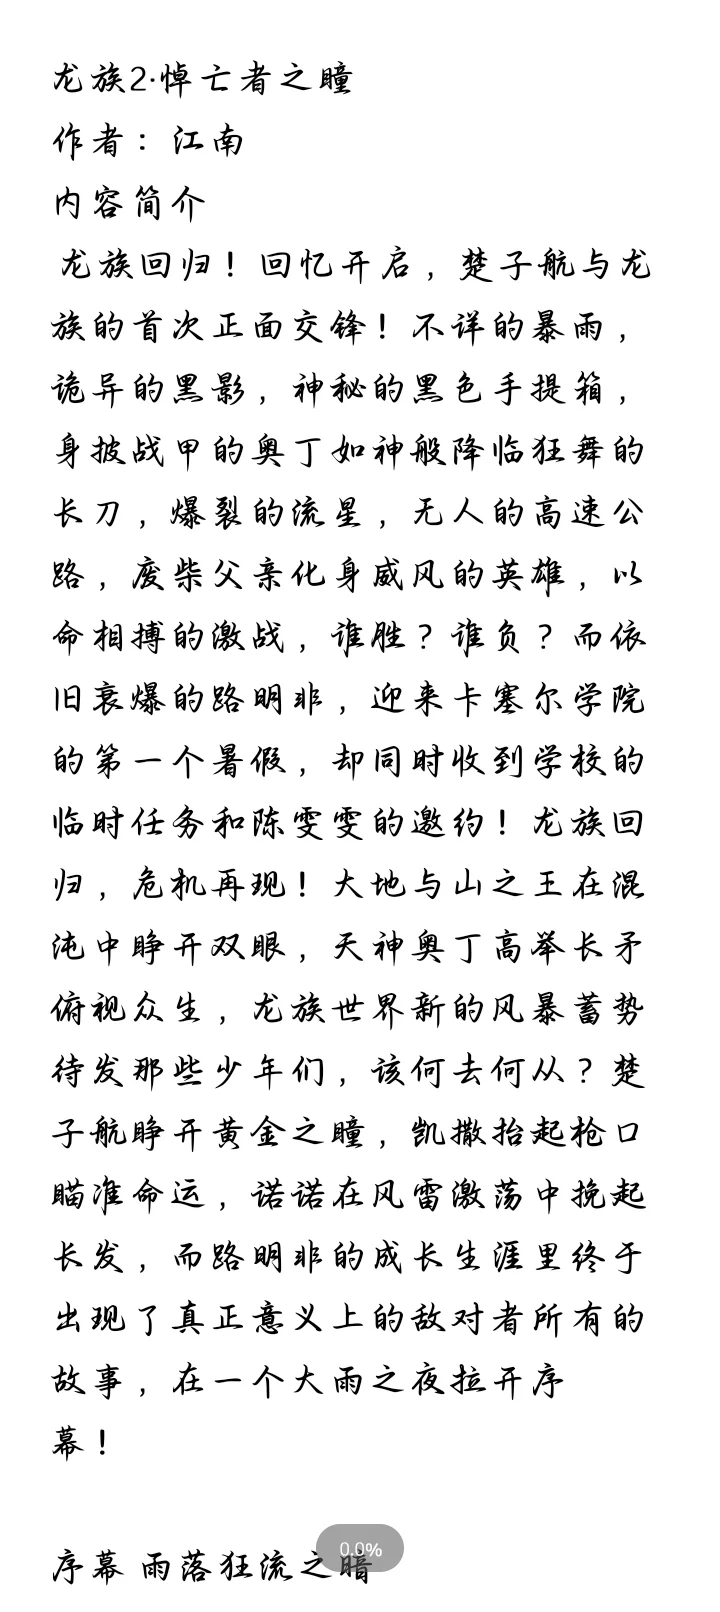 龙族2·悼亡者之瞳
作者：江南
内容简介
龙族回归！回忆开启，楚子航与龙
族的首次正面交锋！不详的暴雨，
诡异的黑影，神秘的黑色手提箱，
身披战甲的奥丁如神般降临狂舞的
长刀，爆裂的流星，无人的高速公
路，废柴父亲化身威风的英雄，以
命相搏的激战，谁胜？谁负？而依
旧衰爆的路明非，迎来卡塞尔学院
的第一个暑假，却同时收到学校的
临时任务和陈雯雯的邀约！龙族回
归，危机再现！大地与山之王在混
沌中睁开双眼，天神奥丁高举长矛
俯视众生，龙族世界新的风暴蓄势
待发那些少年们，该何去何从？楚
子航睁开黄金之瞳，凯撒抬起枪口
瞄准命运，诺诺在风雷激荡中挽起
长发，而路明非的成长生涯里终于
出现了真正意义上的敌对者所有的
故事，在一个大雨之夜拉开序
幕！
序幕 雨落狂流之暗
0.0%